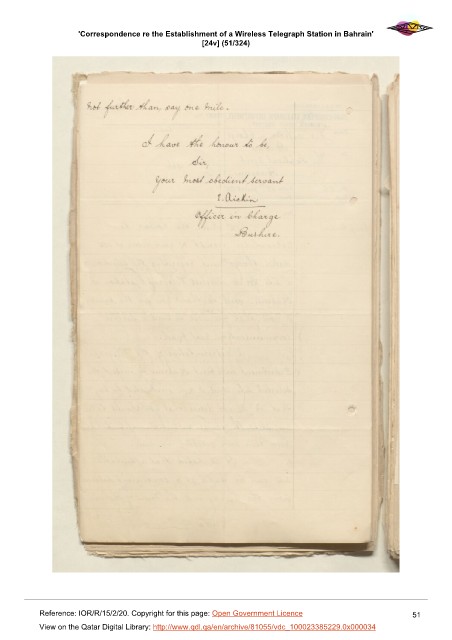 'Correspondence re the Establishment of a Wireless Telegraph Station in Bahrain'
[24v] (51/324)
not further than say one mile.
I have the honour to be,
Sir,
Your most obedient servant
Officer in Charge
Bushire.
Reference: IOR/R/15/2/20. Copyright for this page: Open Government Licence
51
View on the Qatar Digital Library: http://www.qdl.qa/en/archive/81055/vdc_100023385229.0x000034